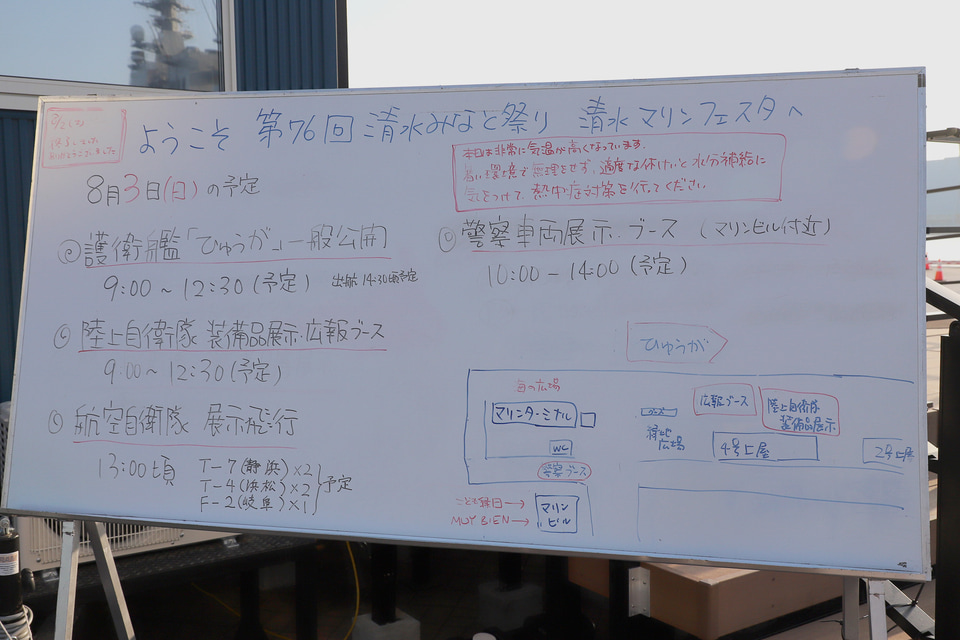 ようこそ 第76回 清水みなと祭り 清水マリンフェスタへ
8月3日(日)の予定
護衛艦「ひゅうが」一般公開
9:00~12:30(予定) 出航 14:30頃予定
陸上自衛隊 装備品展示・広報ブース
9:00~12:30(予定)
航空自衛隊 展示飛行
13:00頃
T-7(静浜)×2
T-4(浜松)×2
F-2(岐阜)×1
予定
本日は非常に気温が高くなっています。
暑い環境で無理をせず、適度な休けいと水分補給に
気をつけて、熱中症対策を行ってください。
警察車両展示・ブース (マリンビル付近)
10:00-14:00(予定)
ひゅうが
海の広場
マリンターミナル
WC
警察ブース
マリン
ビル
MUY BIEN→
広報ブース
陸上自衛隊
装備品展示
緑地
広場
4号上屋
2号上屋